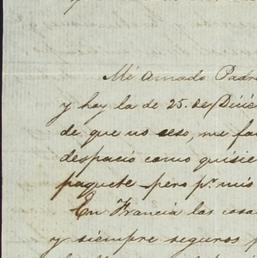 Mi amado Padre
y hoy la de 25. de Dicie
de que no ceso, me fa
despacio como quisie
paquete pero pr. mis
En Francia las cosa
y siempre seguros p